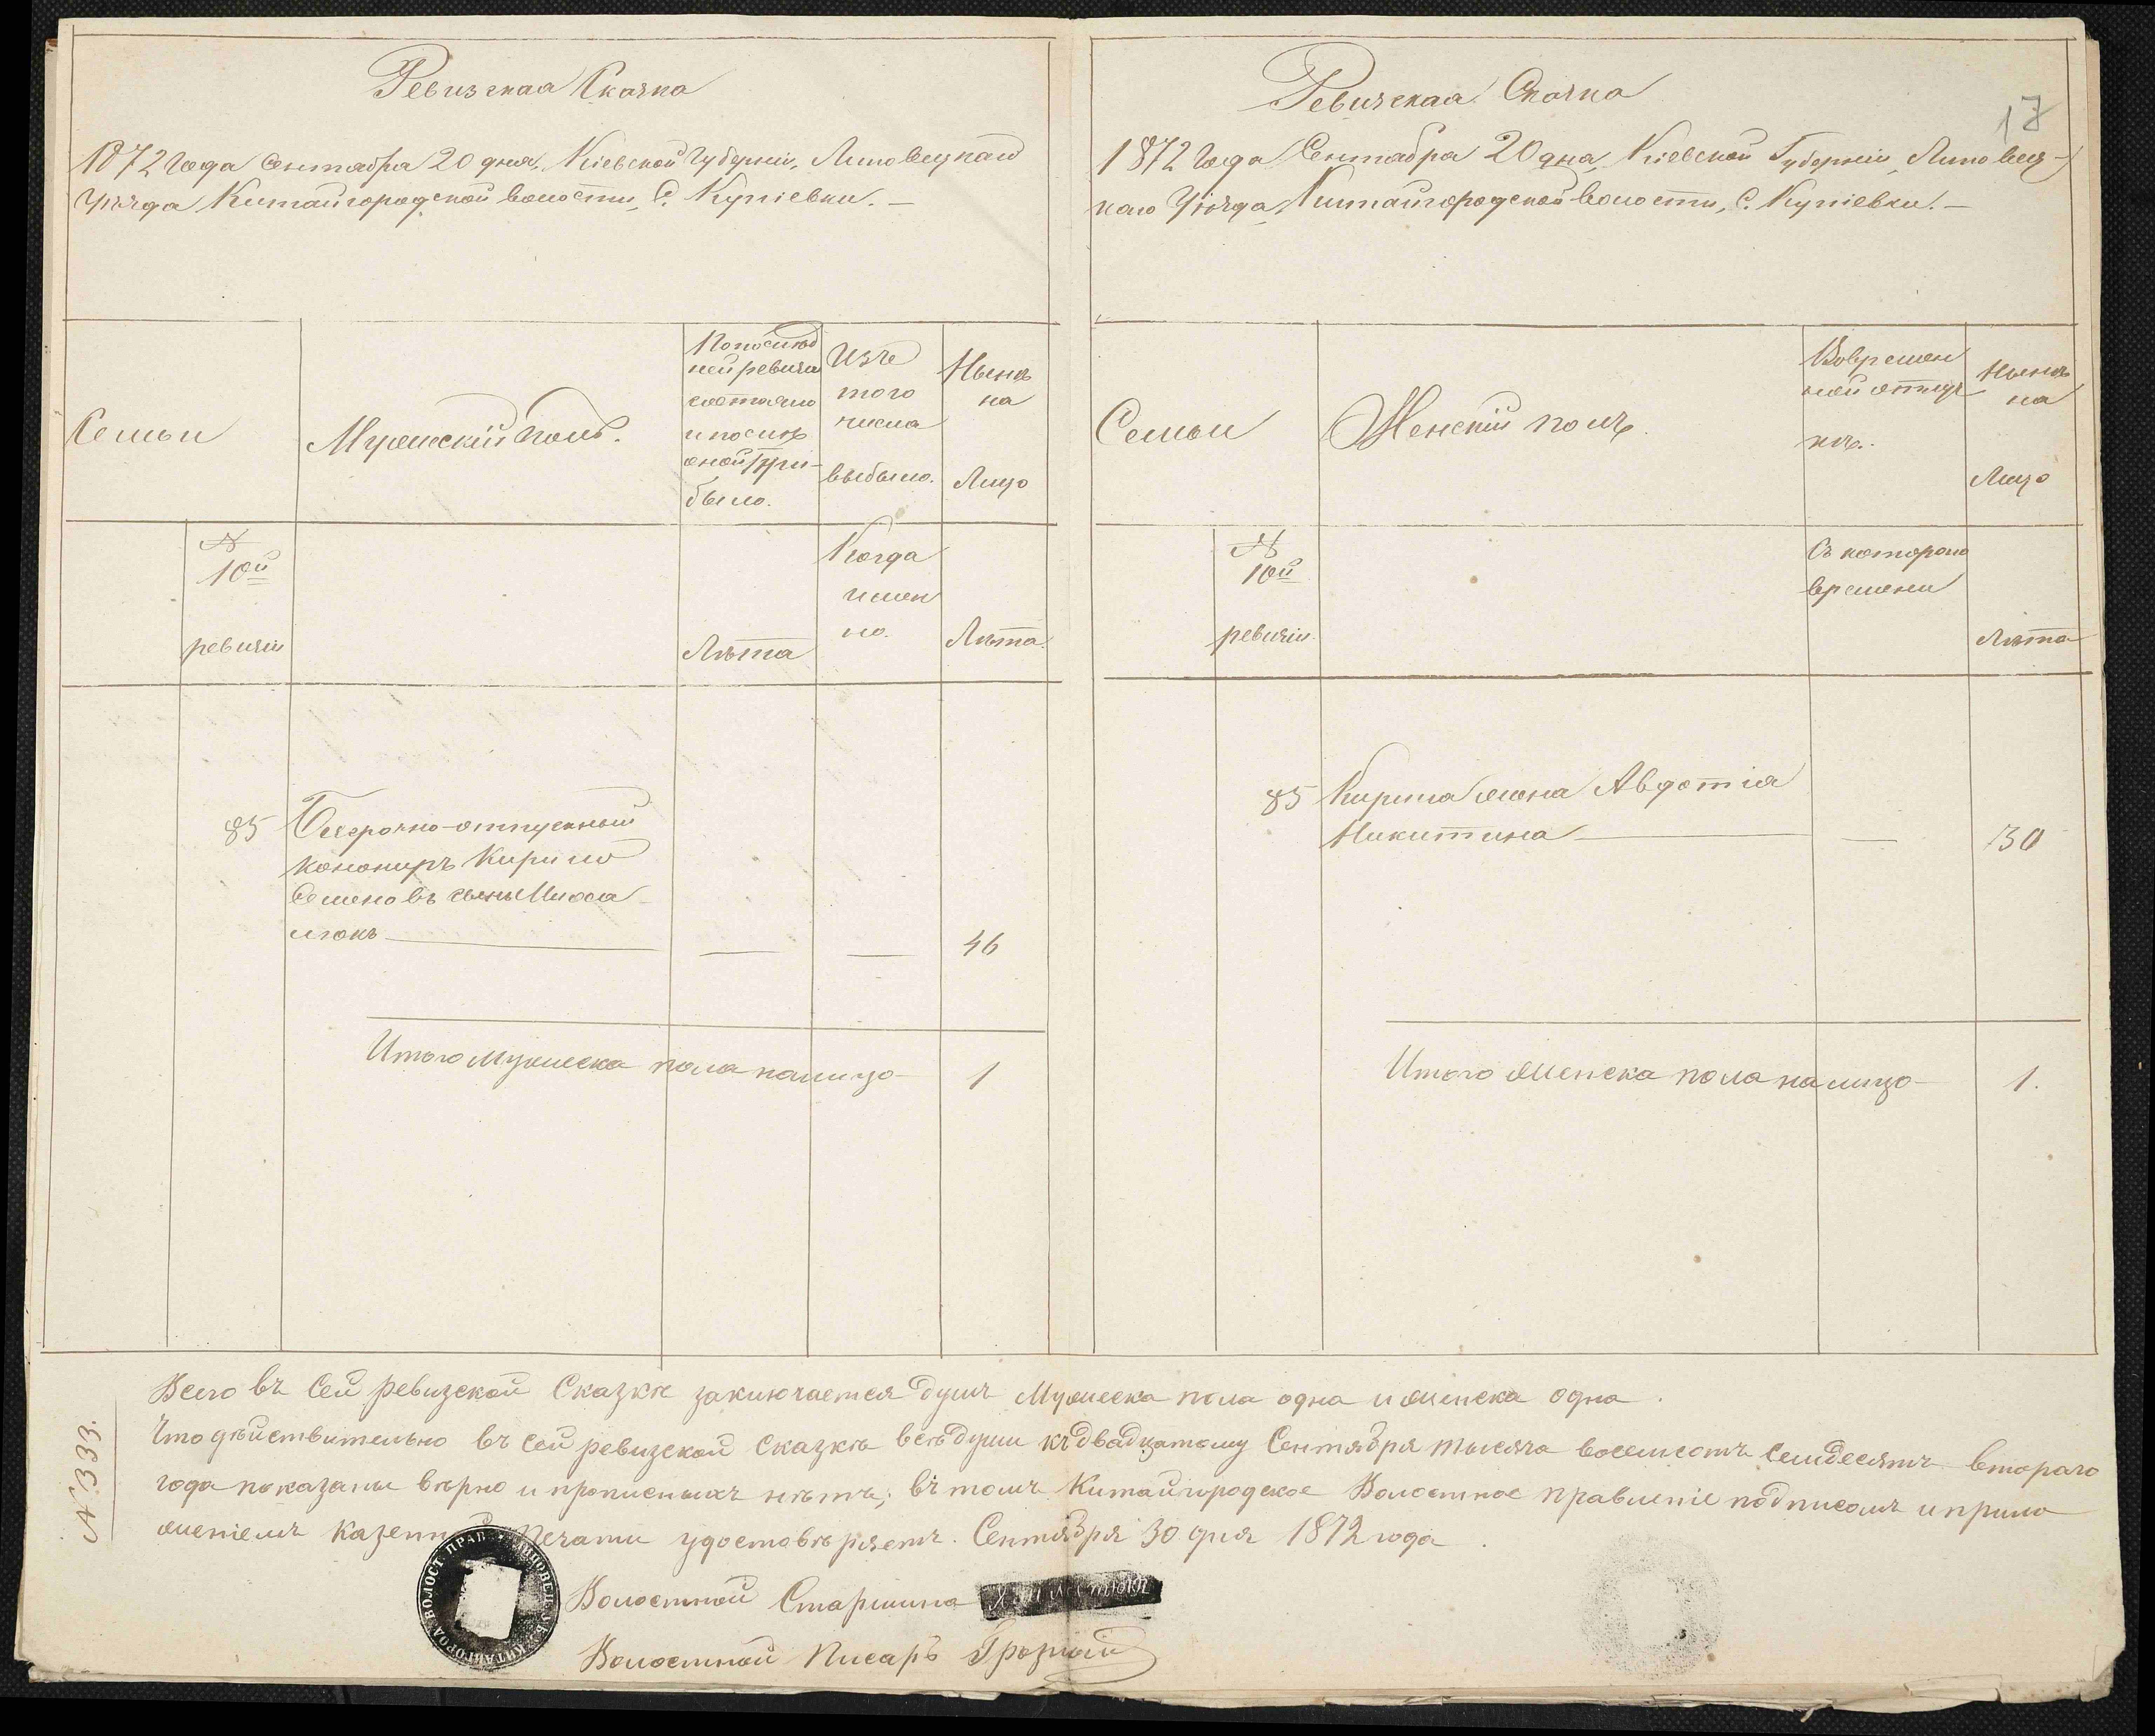 Ревизская Сказка
1872 Года Сентября 20 дня, Кіевской Губерніи, Липовецкаго
Уѣзда Китайгородской волости, С. Купіевки. —
Семьи
Мужескій полъ.
По послѣд
ней ревизіи
состояло
и послѣ
оной при-
было.
Изъ
того
числа
выбыло.
Нынѣ
на
Лицо
№
10ой
ревизіи
Лѣта
Когда
имен
но.
Лѣта.
85
Безсрочно-отпускный
канониръ Кирило
Семеновъ сынъ
люкъ — — — 46
Итого Мужеска пола налицо — 1
Ревизская Сказка
17
1872 Года Сентября 20 дня, Кіевской Губерніи, Липовец-
каго Уѣзда, Китайгородской волости, С. Купіевки. —
Семьи
Женскій полъ.
Во времен
ной отлуч
кѣ.
Нынѣ
на
Лицо
№
10ой
ревизіи.
Съ котораго
времени
Лѣта
85 Кирила жена Авдотія
Никитина — — 30
Итого Женска пола налицо — 1.
Всего въ Сей ревизской Сказкѣ заключается душъ Мужеска пола одна и женска одна.
Что дѣйствительно въ сей ревизской сказкѣ всѣ души къ двадцатому Сентября тысяча восемьсотъ семьдесятъ втораго
года показаны вѣрно и прописныхъ нѣтъ; въ томъ Китайгородское Волостное правленіе подписомъ и прило
женіемъ казенной Печати удостовѣряетъ. Сентября 30 дня 1872 года.
№ 333.
Волостной Старшина
Волостной Писаръ Грозный
КИТАЙГОРОД. ВОЛОСТ. ПРАВ. ЛИПОВЕЦ. У.